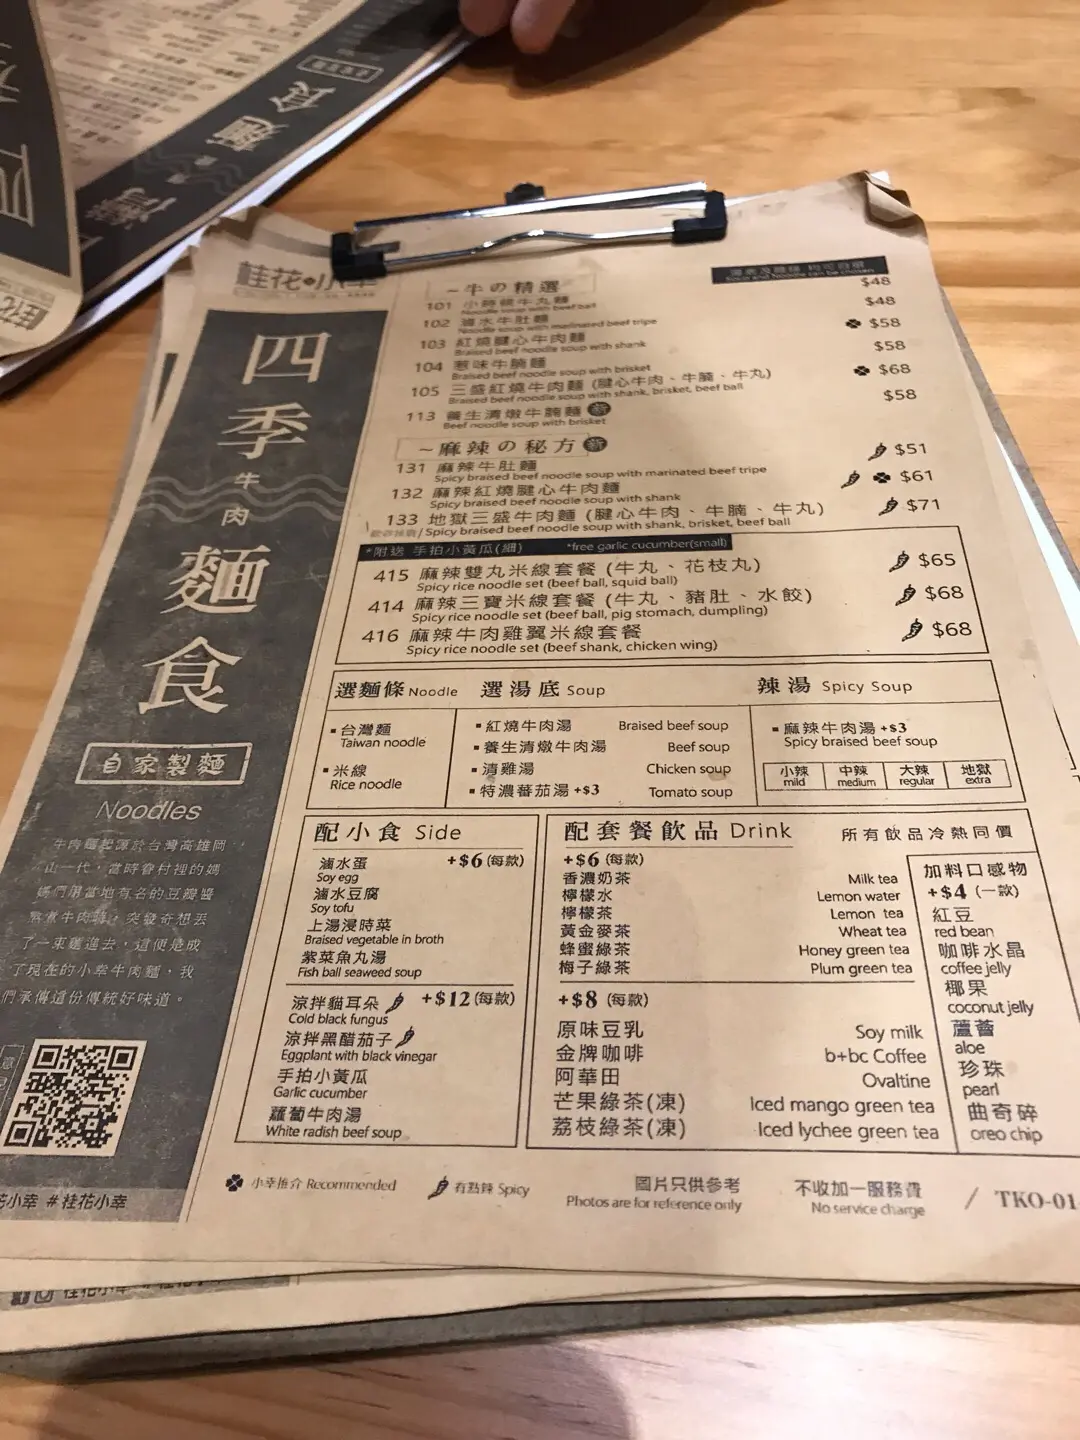 桂花 小幸
~牛の精選
湯底及麵條 均可自選
Soup and Noodle can be chosen
101 小時頓牛丸麵 $48
Noodle soup with beef ball
102 滷水牛肚麵 $48
Noodle soup with marinated beef tripe
103 紅燒腱心牛肉麵 $58
Braised beef noodle soup with shank
104 惹味牛腩麵 $58
Braised beef noodle soup with brisket
105 三盛紅燒牛肉麵 (腱心牛肉、牛腩、牛丸) $68
Braised beef noodle soup with shank, brisket, beef ball
113 養生清燉牛腩麵 新 $58
Beef noodle soup with brisket
~麻辣の秘方 新
131 麻辣牛肚麵 $51
Spicy braised beef noodle soup with marinated beef tripe
132 麻辣紅燒腱心牛肉麵 $61
Spicy braised beef noodle soup with shank
133 地獄三盛牛肉麵 (腱心牛肉、牛腩、牛丸) $71
/ Spicy braised beef noodle soup with shank, brisket, beef ball
*附送 手拍小黃瓜(細) *free garlic cucumber(small)
415 麻辣雙丸米線套餐 (牛丸、花枝丸) $65
Spicy rice noodle set (beef ball, squid ball)
414 麻辣三寶米線套餐 (牛丸、豬肚、水餃) $68
Spicy rice noodle set (beef ball, pig stomach, dumpling)
416 麻辣牛肉雞翼米線套餐 $68
Spicy rice noodle set (beef shank, chicken wing)
選麵條 Noodle
▪台灣麵
Taiwan noodle
▪米線
Rice noodle
選湯底 Soup
▪紅燒牛肉湯 Braised beef soup
▪養生清燉牛肉湯 Beef soup
▪清雞湯 Chicken soup
▪特濃蕃茄湯 +$3 Tomato soup
辣湯 Spicy Soup
▪麻辣牛肉湯 +$3
Spicy braised beef soup
小辣 中辣 大辣 地獄
mild medium regular extra
配小食 Side
滷水蛋 +$6 (每款)
Soy egg
滷水豆腐
Soy tofu
上湯浸時菜
Braised vegetable in broth
紫菜魚丸湯
Fish ball seaweed soup
涼拌貓耳朵 +$12 (每款)
Cold black fungus
涼拌黑醋茄子
Eggplant with black vinegar
手拍小黃瓜
Garlic cucumber
蘿蔔牛肉湯
White radish beef soup
配套餐飲品 Drink 所有飲品冷熱同價
+$6 (每款)
香濃奶茶 Milk tea
檸檬水 Lemon water
檸檬茶 Lemon tea
黃金麥茶 Wheat tea
蜂蜜綠茶 Honey green tea
梅子綠茶 Plum green tea
+$8 (每款)
原味豆乳 Soy milk
金牌咖啡 b+bc Coffee
阿華田 Ovaltine
芒果綠茶(凍) Iced mango green tea
荔枝綠茶(凍) Iced lychee green tea
加料口感物
+$4 (一款)
紅豆
red bean
咖啡水晶
coffee jelly
椰果
coconut jelly
蘆薈
aloe
珍珠
pearl
曲奇碎
oreo chip
四季牛肉麵食
自家製麵
Noodles
牛肉麵起源於台灣高雄岡
山一代，當時眷村裡的媽
媽們用當地有名的豆瓣醬
熬煮牛肉時，突發奇想丟
了一束麵進去，這便是成
了現在的小幸牛肉麵，我
們承傳這份傳統好味道。
花小幸 #桂花小幸
小幸推介 Recommended
有點辣 Spicy
圖片只供參考
Photos are for reference only
不收加一服務費
No service charge
/ TKO-01
桂花小幸
麵食
桂花